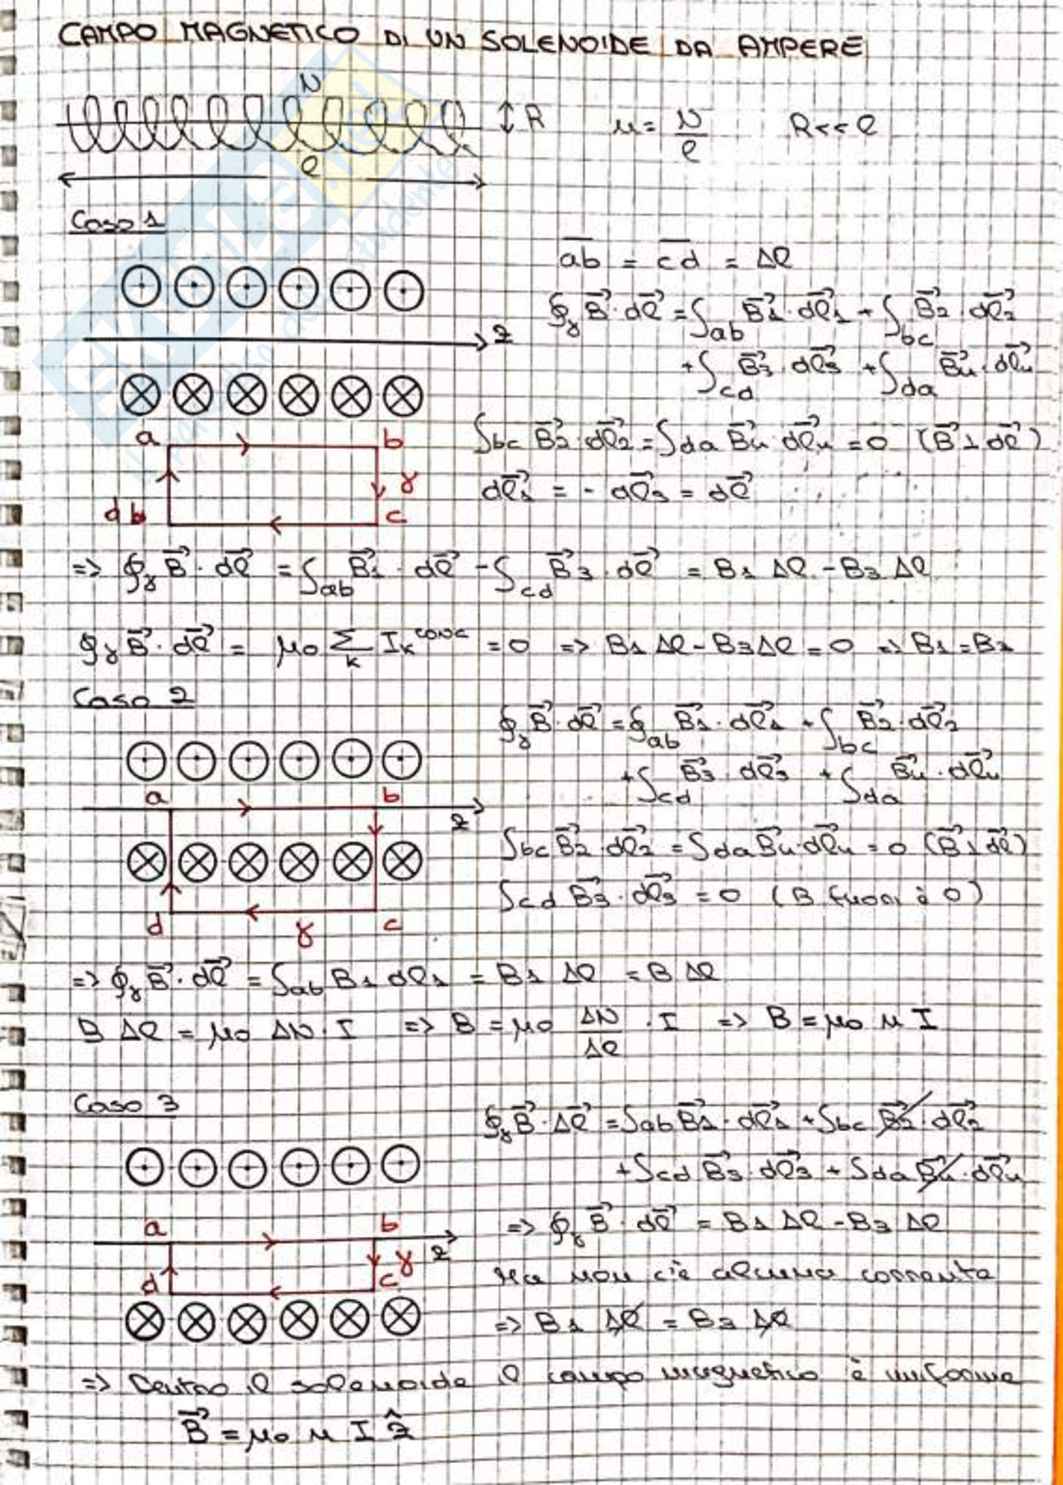 CAMPO MAGNETICO DI UN SOLENOIDE DA AMPERE
N
R
n = N/ℓ
R<<ℓ
ℓ
Caso 1
ab = cd = Δℓ
∮γ B⃗ · dℓ⃗ = ∫ab B⃗1 · dℓ⃗1 + ∫bc B⃗2 · dℓ⃗2
+ ∫cd B⃗3 · dℓ⃗3 + ∫da B⃗4 · dℓ⃗4
z
a b
∫bc B⃗2 · dℓ⃗2 = ∫da B⃗4 · dℓ⃗4 = 0 (B⃗ ⊥ dℓ⃗)
γ
dℓ⃗1 = - dℓ⃗3 = dℓ⃗
d c
=> ∮γ B⃗ · dℓ⃗ = ∫ab B⃗1 · dℓ⃗ - ∫cd B⃗3 · dℓ⃗ = B1 Δℓ - B3 Δℓ
∮γ B⃗ · dℓ⃗ = μ0 Σk Ik^conc = 0 => B1 Δℓ - B3 Δℓ = 0 => B1 = B3
Caso 2
∮γ B⃗ · dℓ⃗ = ∮ab B⃗1 · dℓ⃗1 + ∫bc B⃗2 · dℓ⃗2
+ ∫cd B⃗3 · dℓ⃗3 + ∫da B⃗4 · dℓ⃗4
a b
z
∫bc B⃗2 · dℓ⃗2 = ∫da B⃗4 · dℓ⃗4 = 0 (B⃗ ⊥ dℓ⃗)
∫cd B⃗3 · dℓ⃗3 = 0 (B fuori è 0)
d γ c
=> ∮γ B⃗ · dℓ⃗ = ∫ab B1 dℓ1 = B1 Δℓ = B Δℓ
B Δℓ = μ0 ΔN · I => B = μ0 ΔN/Δℓ · I => B = μ0 n I
Caso 3
∮γ B⃗ · Δℓ⃗ = ∫ab B⃗1 · dℓ⃗1 + ∫bc B⃗2 · dℓ⃗2
+ ∫cd B⃗3 · dℓ⃗3 + ∫da B⃗4 · dℓ⃗4
a b
z
=> ∮γ B⃗ · dℓ⃗ = B1 Δℓ - B3 Δℓ
d c γ
Ma non c'è alcuna corrente
=> B1 Δℓ = B3 Δℓ
=> Dentro il solenoide il campo magnetico è uniforme
B⃗ = μ0 n I ẑ